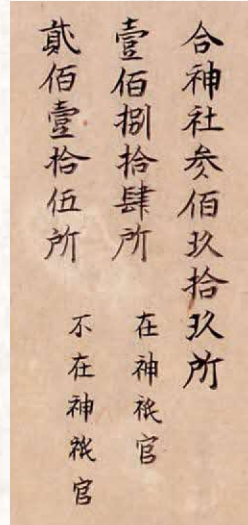 合神社参佰玖拾玖所
壹佰捌拾肆所 在神祇官
貳佰壹拾伍所 不在神祇官